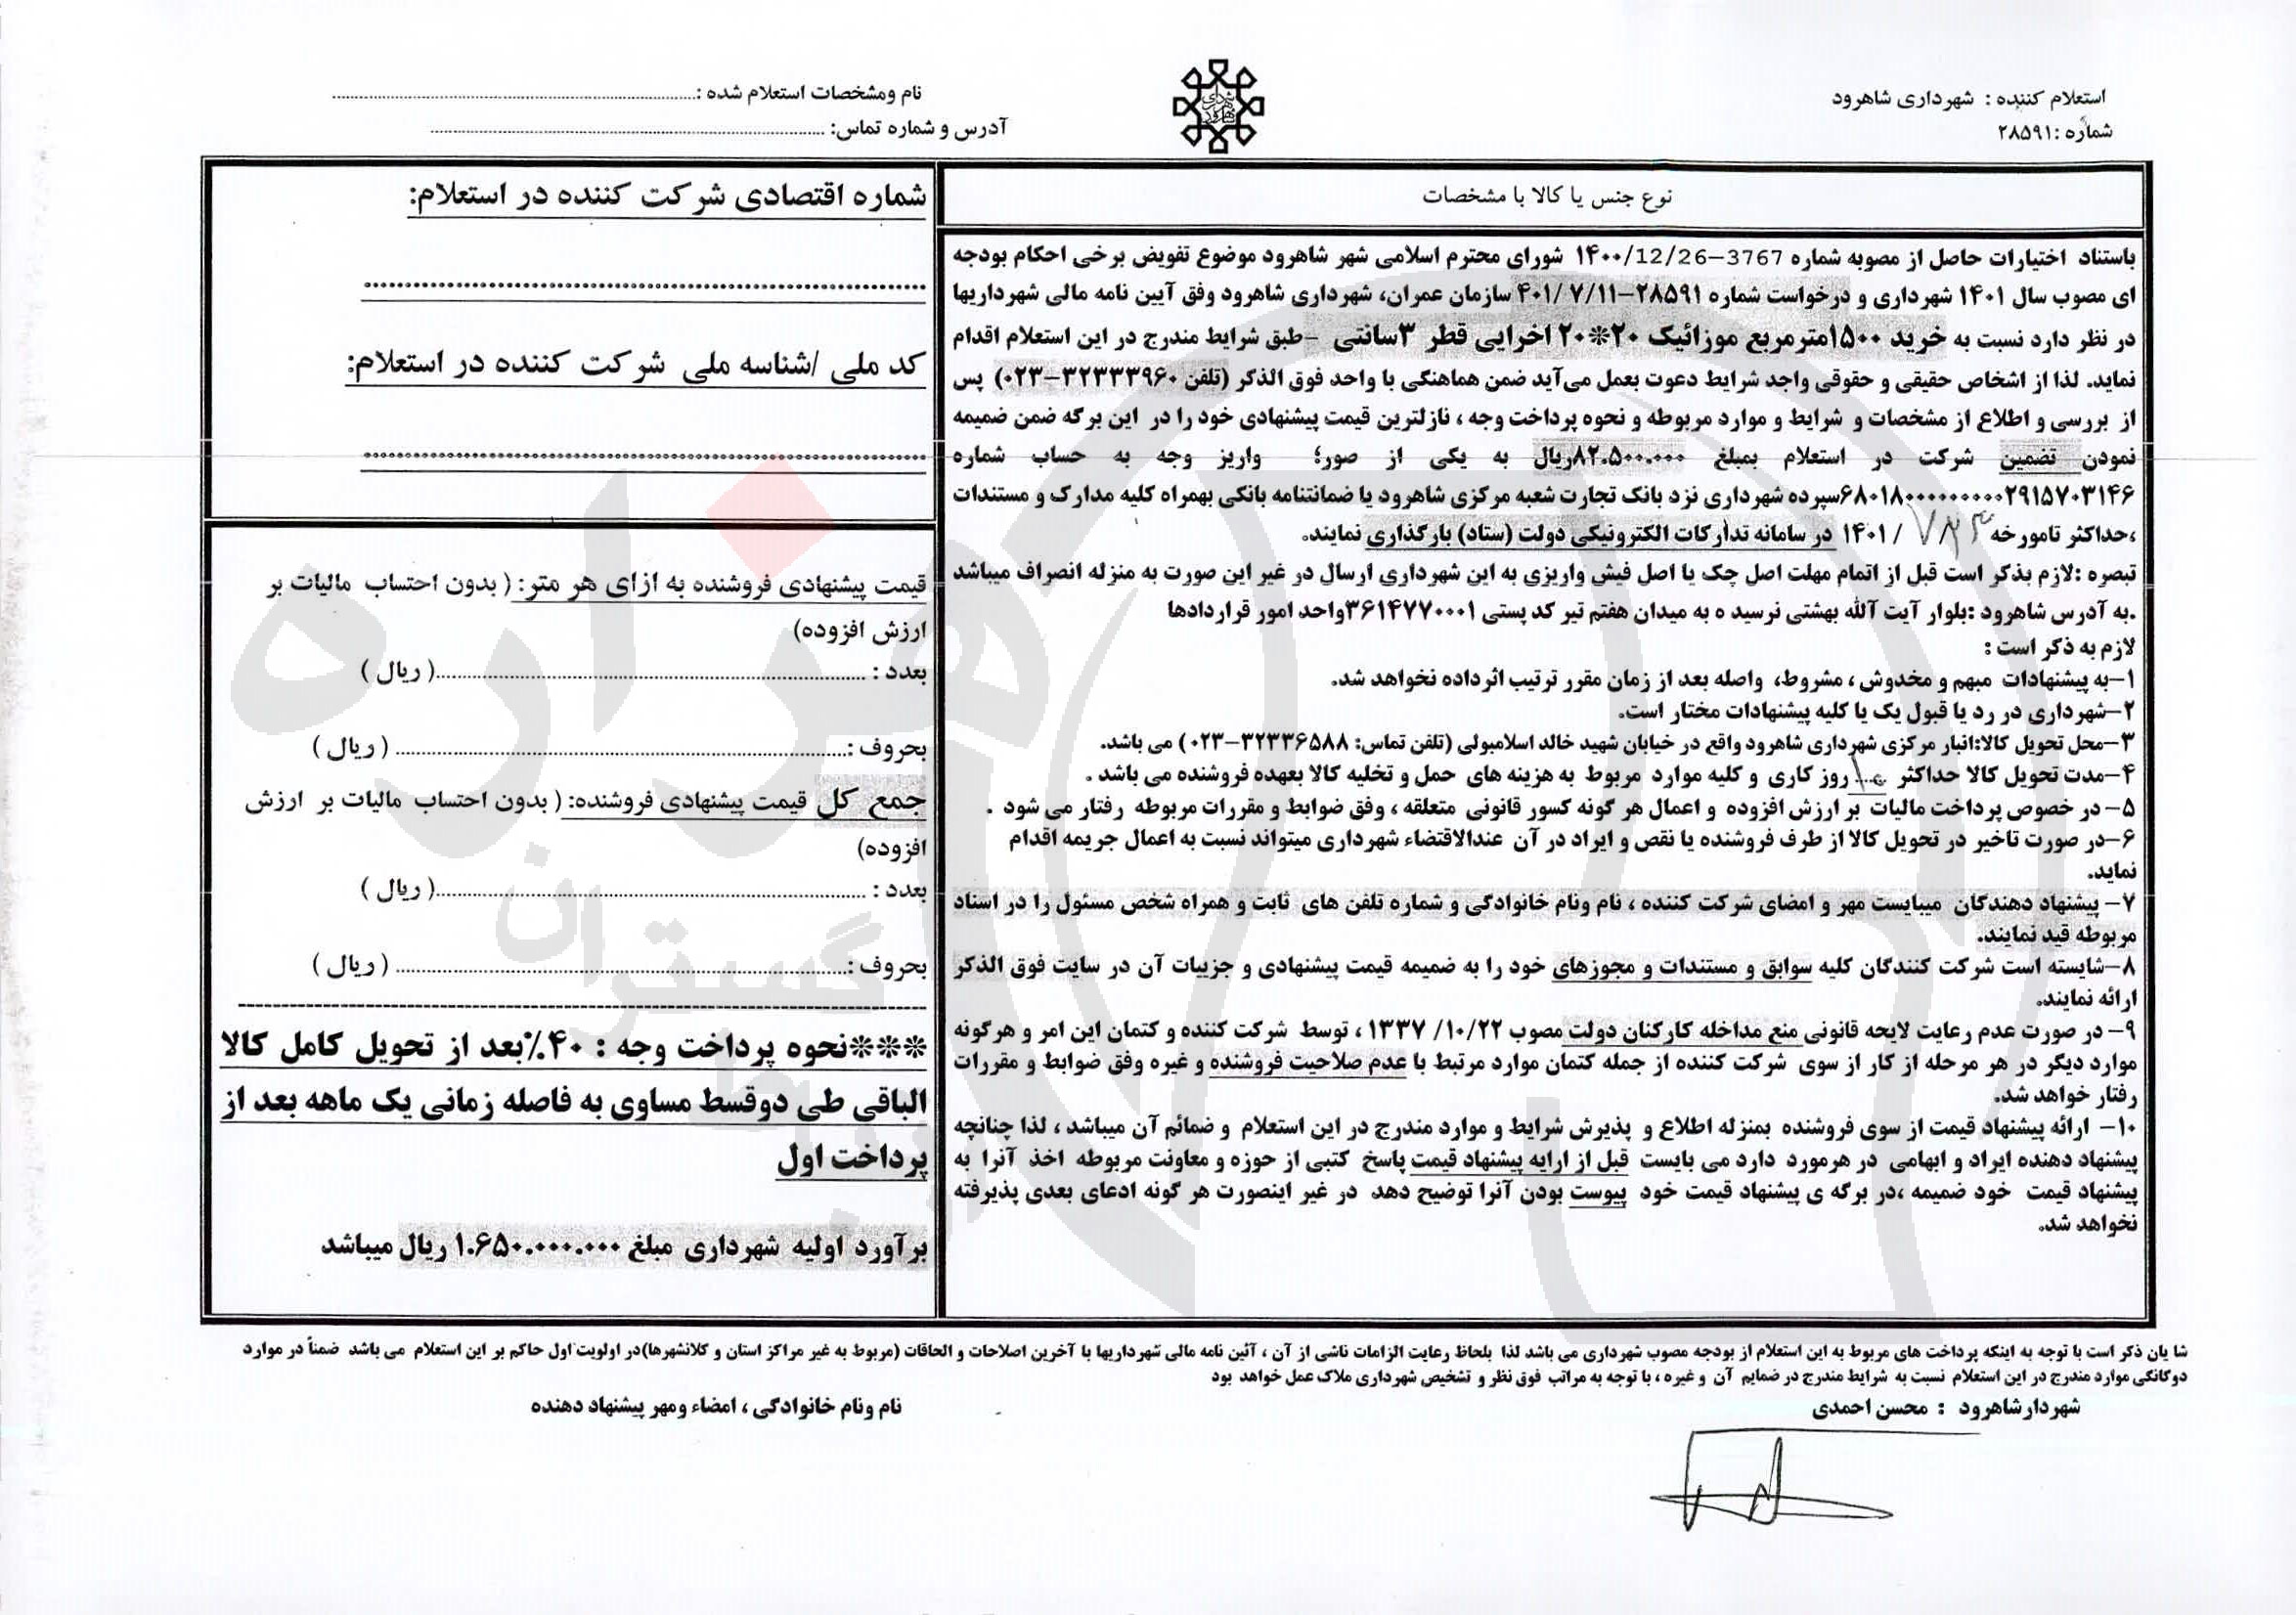 استعلام کننده : شهرداری شاهرود
شماره :۲۸۵۹۱
نام ومشخصات استعلام شده :
آدرس و شماره تماس:
نوع جنس یا کالا با مشخصات
باستناد اختیارات حاصل از مصوبه شماره 3767-12/26/۱۴۰۰ شورای محترم اسلامی شهر شاهرود موضوع تفویض برخی احکام بودجه
ای مصوب سال ۱۴۰۱ شهرداری و درخواست شماره ۲۸۵۹۱-۴۰۱/۷/۱۱ سازمان عمران، شهرداری شاهرود وفق آیین نامه مالی شهرداریها
در نظر دارد نسبت به خرید ۱۵۰۰مترمربع موزائیک ۲۰*۲۰ اخرایی قطر ۳سانتی -طبق شرایط مندرج در این استعلام اقدام
نماید. لذا از اشخاص حقیقی و حقوقی واجد شرایط دعوت بعمل می‌آید ضمن هماهنگی با واحد فوق الذکر (تلفن ۳۲۳۳۳۹۶۰-۰۲۳) پس
از بررسی و اطلاع از مشخصات و شرایط و موارد مربوطه و نحوه پرداخت وجه ، نازلترین قیمت پیشنهادی خود را در این برگه ضمن ضمیمه
نمودن تضمین شرکت در استعلام بمبلغ ۸۲.۵۰۰.۰۰۰ریال به یکی از صور؛ واریز وجه به حساب شماره
۶۸۰۱۸۰۰۰۰۰۰۰۰۰۰۲۹۱۵۷۰۳۱۴۶سپرده شهرداری نزد بانک تجارت شعبه مرکزی شاهرود یا ضمانتنامه بانکی بهمراه کلیه مدارک و مستندات
،حداکثر تامورخه / ۱۴۰۱ در سامانه تدارکات الکترونیکی دولت (ستاد) بارگذاری نمایند.
تبصره :لازم بذکر است قبل از اتمام مهلت اصل چک یا اصل فیش واریزی به این شهرداری ارسال در غیر این صورت به منزله انصراف میباشد
.به آدرس شاهرود :بلوار آیت آلله بهشتی نرسید ه به میدان هفتم تیر کد پستی ۳۶۱۴۷۷۰۰۰۱واحد امور قراردادها
لازم به ذکر است :
۱-به پیشنهادات مبهم و مخدوش ، مشروط، واصله بعد از زمان مقرر ترتیب اثرداده نخواهد شد.
۲-شهرداری در رد یا قبول یک یا کلیه پیشنهادات مختار است.
۳-محل تحویل کالا:انبار مرکزی شهرداری شاهرود واقع در خیابان شهید خالد اسلامبولی (تلفن تماس: ۳۲۳۳۶۵۸۸-۰۲۳) می باشد.
۴-مدت تحویل کالا حداکثر روز کاری و کلیه موارد مربوط به هزینه های حمل و تخلیه کالا بعهده فروشنده می باشد .
۵- در خصوص پرداخت مالیات بر ارزش افزوده و اعمال هر گونه کسور قانونی متعلقه ، وفق ضوابط و مقررات مربوطه رفتار می شود .
۶-در صورت تاخیر در تحویل کالا از طرف فروشنده یا نقص و ایراد در آن عندالاقتضاء شهرداری میتواند نسبت به اعمال جریمه اقدام
نماید.
۷- پیشنهاد دهندگان میبایست مهر و امضای شرکت کننده ، نام ونام خانوادگی و شماره تلفن های ثابت و همراه شخص مسئول را در اسناد
مربوطه قید نمایند.
۸-شایسته است شرکت کنندگان کلیه سوابق و مستندات و مجوزهای خود را به ضمیمه قیمت پیشنهادی و جزییات آن در سایت فوق الذکر
ارائه نمایند.
۹- در صورت عدم رعایت لایحه قانونی منع مداخله کارکنان دولت مصوب ۱۰/۲۲/ ۱۳۳۷ ، توسط شرکت کننده و کتمان این امر و هرگونه
موارد دیگر در هر مرحله از کار از سوی شرکت کننده از جمله کتمان موارد مرتبط با عدم صلاحیت فروشنده و غیره وفق ضوابط و مقررات
رفتار خواهد شد.
۱۰- ارائه پیشنهاد قیمت از سوی فروشنده بمنزله اطلاع و پذیرش شرایط و موارد مندرج در این استعلام و ضمائم آن میباشد ، لذا چنانچه
پیشنهاد دهنده ایراد و ابهامی در هرمورد دارد می بایست قبل از ارایه پیشنهاد قیمت پاسخ کتبی از حوزه و معاونت مربوطه اخذ آنرا به
پیشنهاد قیمت خود ضمیمه ،در برگه ی پیشنهاد قیمت خود پیوست بودن آنرا توضیح دهد در غیر اینصورت هر گونه ادعای بعدی پذیرفته
نخواهد شد.
شماره اقتصادی شرکت کننده در استعلام:
کد ملی /شناسه ملی شرکت کننده در استعلام:
قیمت پیشنهادی فروشنده به ازای هر متر: ( بدون احتساب مالیات بر
ارزش افزوده)
بعدد : ( ریال )
بحروف : ( ریال )
جمع کل قیمت پیشنهادی فروشنده: ( بدون احتساب مالیات بر ارزش
افزوده)
بعدد : ( ریال )
بحروف : ( ریال )
***نحوه پرداخت وجه : ۴۰٪بعد از تحویل کامل کالا
الباقی طی دوقسط مساوی به فاصله زمانی یک ماهه بعد از
پرداخت اول
برآورد اولیه شهرداری مبلغ ۱.۶۵۰.۰۰۰.۰۰۰ ریال میباشد
شا یان ذکر است با توجه به اینکه پرداخت های مربوط به این استعلام از بودجه مصوب شهرداری می باشد لذا بلحاظ رعایت الزامات ناشی از آن ، آئین نامه مالی شهرداریها با آخرین اصلاحات و الحاقات (مربوط به غیر مراکز استان و کلانشهرها)در اولویت اول حاکم بر این استعلام می باشد ضمناً در موارد
دوگانگی موارد مندرج در این استعلام نسبت به شرایط مندرج در ضمایم آن و غیره ، با توجه به مراتب فوق نظر و تشخیص شهرداری ملاک عمل خواهد بود
شهردار شاهرود : محسن احمدی
نام ونام خانوادگی ، امضاء ومهر پیشنهاد دهنده
هزاره
گستران